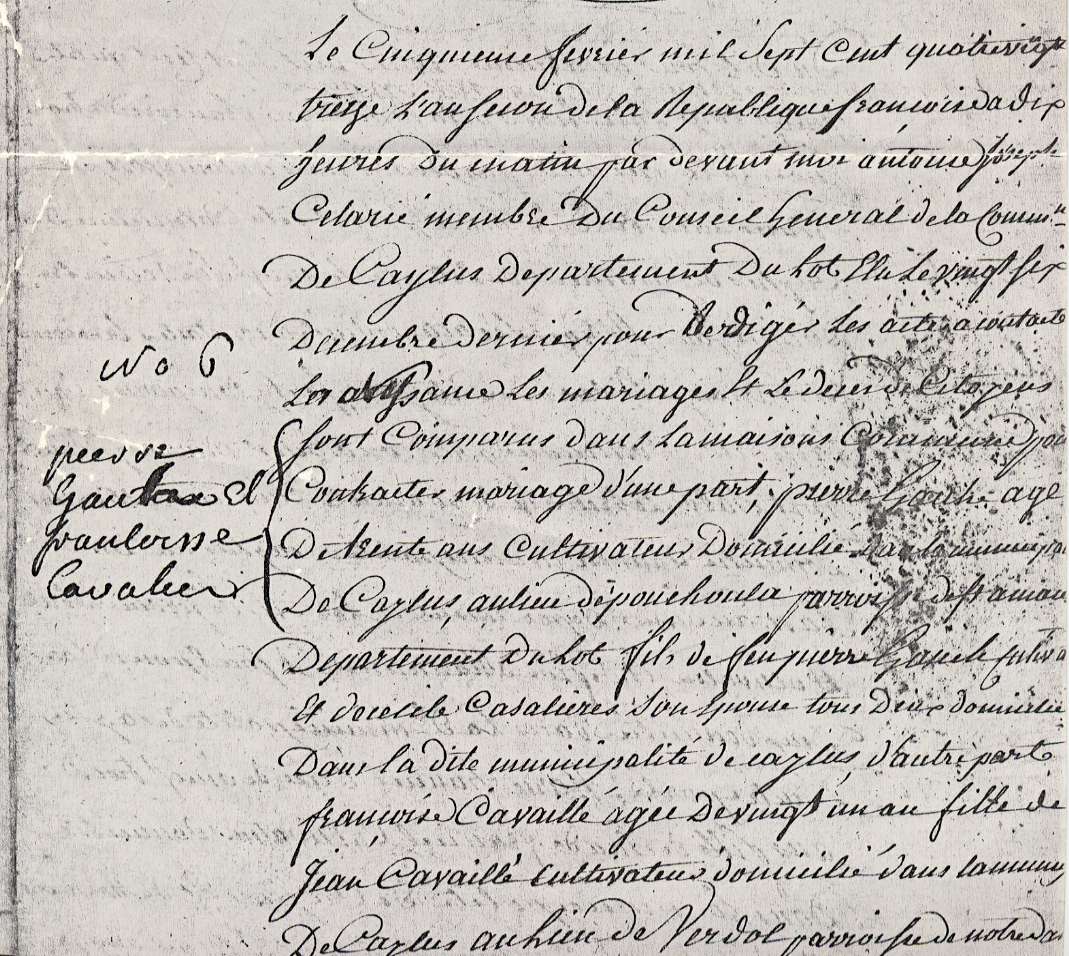 Le Cinquieme fevrier mil Sept Cent quatrevingt
treize L'an second de la Republique francoise a dix
heures du matin par devant moi antoine joseph
Celarié membre Du Conseil General de la Comm.ne
De Caylus Departement Du Lot Elu Le vingt six
Decembre dernier pour Rerdigér Les acte a
La Les mariages Et Le deces de Citoyens
sont Comparus dans La maisons Commune pou
Contracter mariage d'une part, pierre Gauch age
De trente ans Cultivateur Domicilié dan La munici
De Caylus, au lieu dépouchoula parroisse de St aman
Departement Du Lot fils de feu pierre Gauch Cultiva
Et de Casalieres Son Epouse tous Deux domicilié
Dans La dite municipalité de caylus d'autre part
francoise Cavaillé agée De vingt un an fille de
Jean Cavaillé Cultivateur domicilié dans La muni
De Caylus au Lieu de Verdol parroisse de notre da
No 6
pierre
Et
francoisse
Cavalier